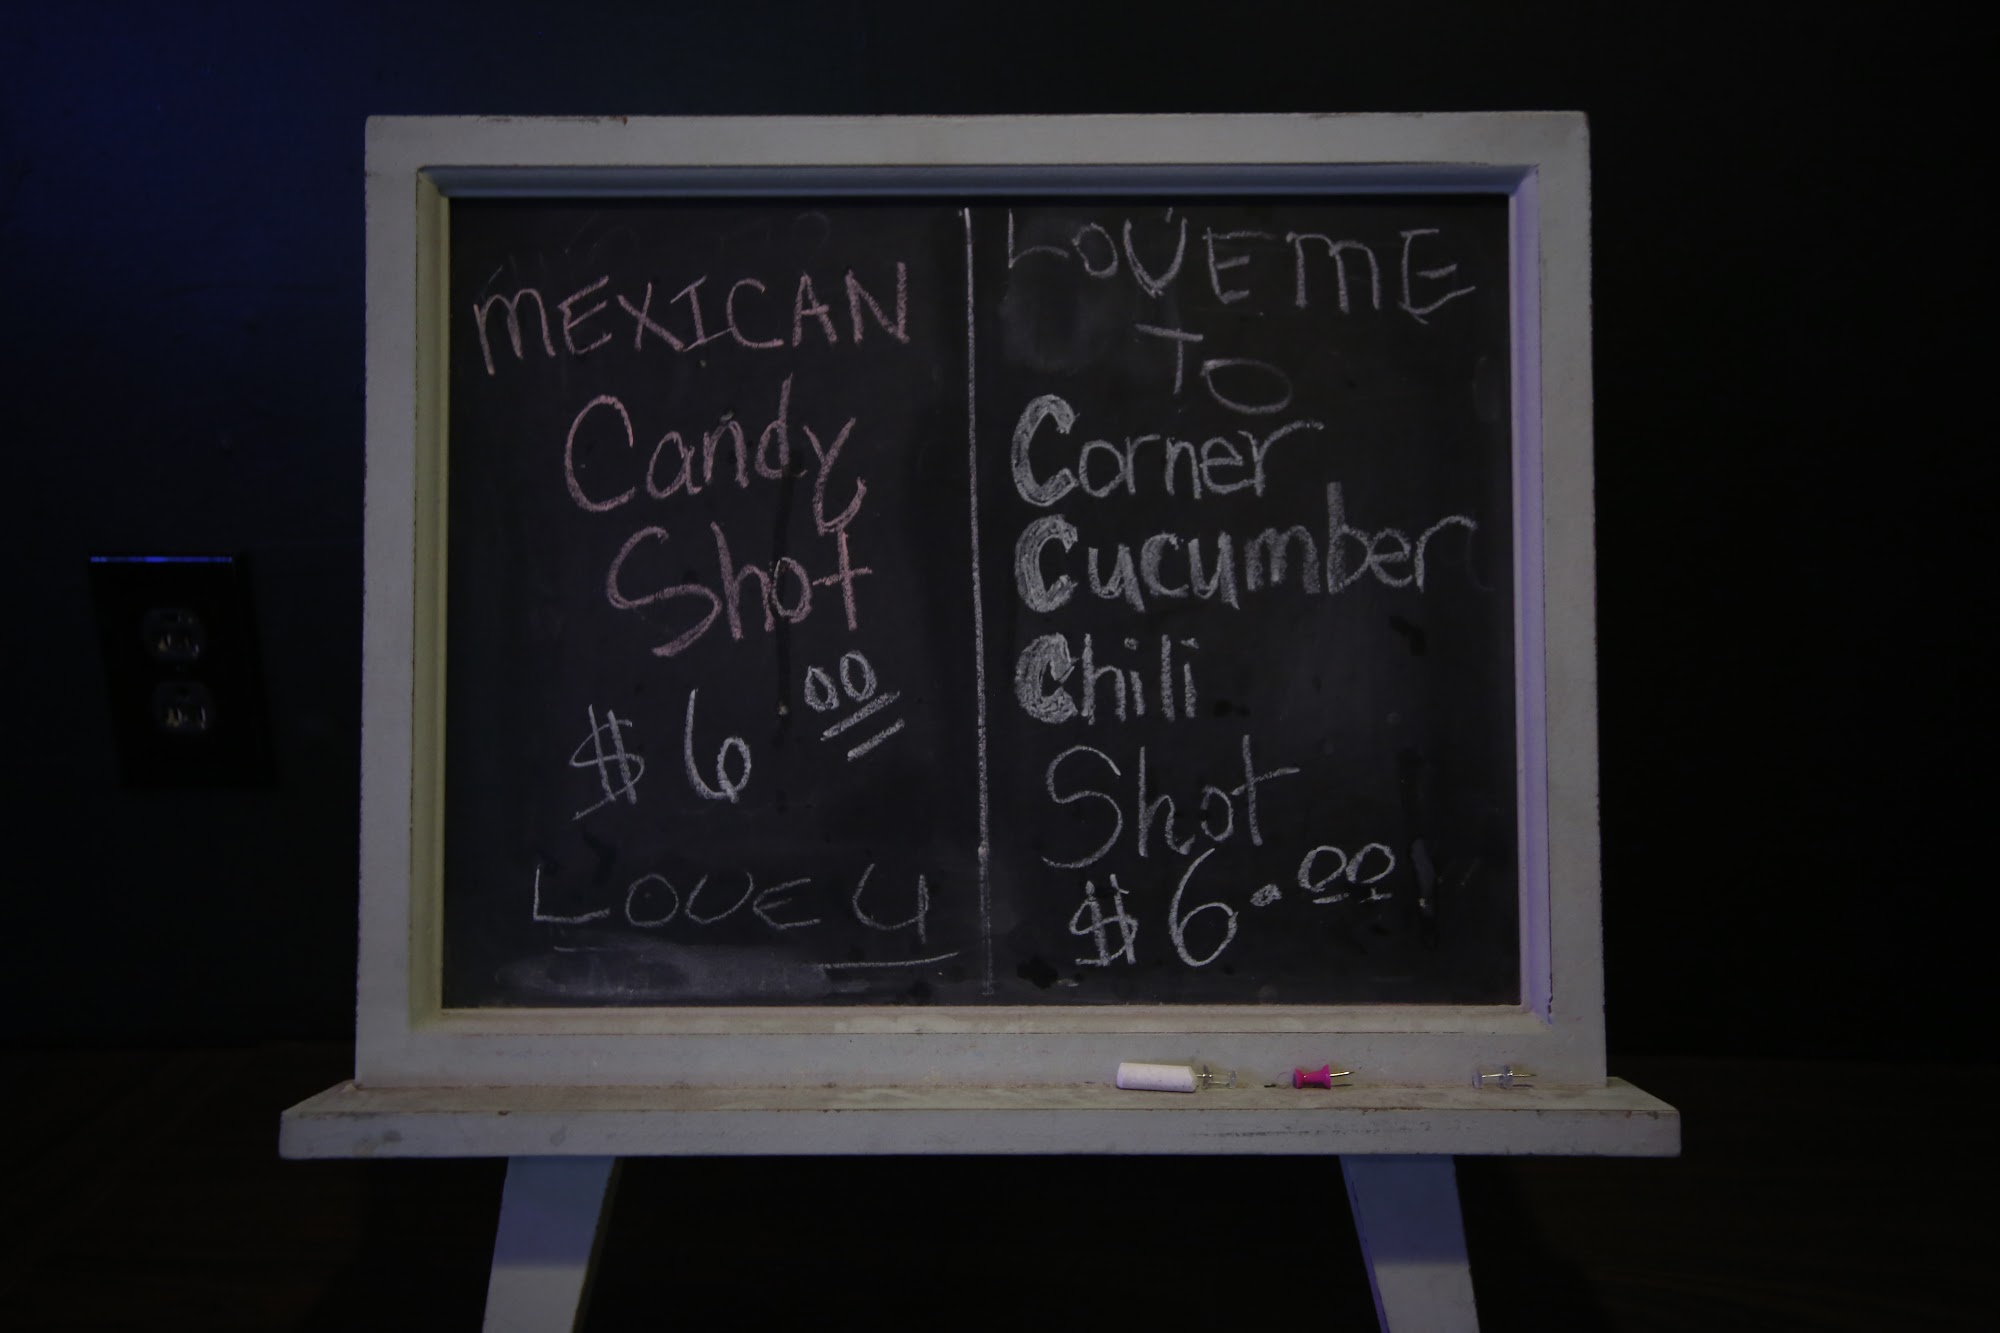 MEXICAN
Candy
Shot
$6.00
LOVE U
LOVE ME
TO
Corner
Cucumber
Chili
Shot
$6.00